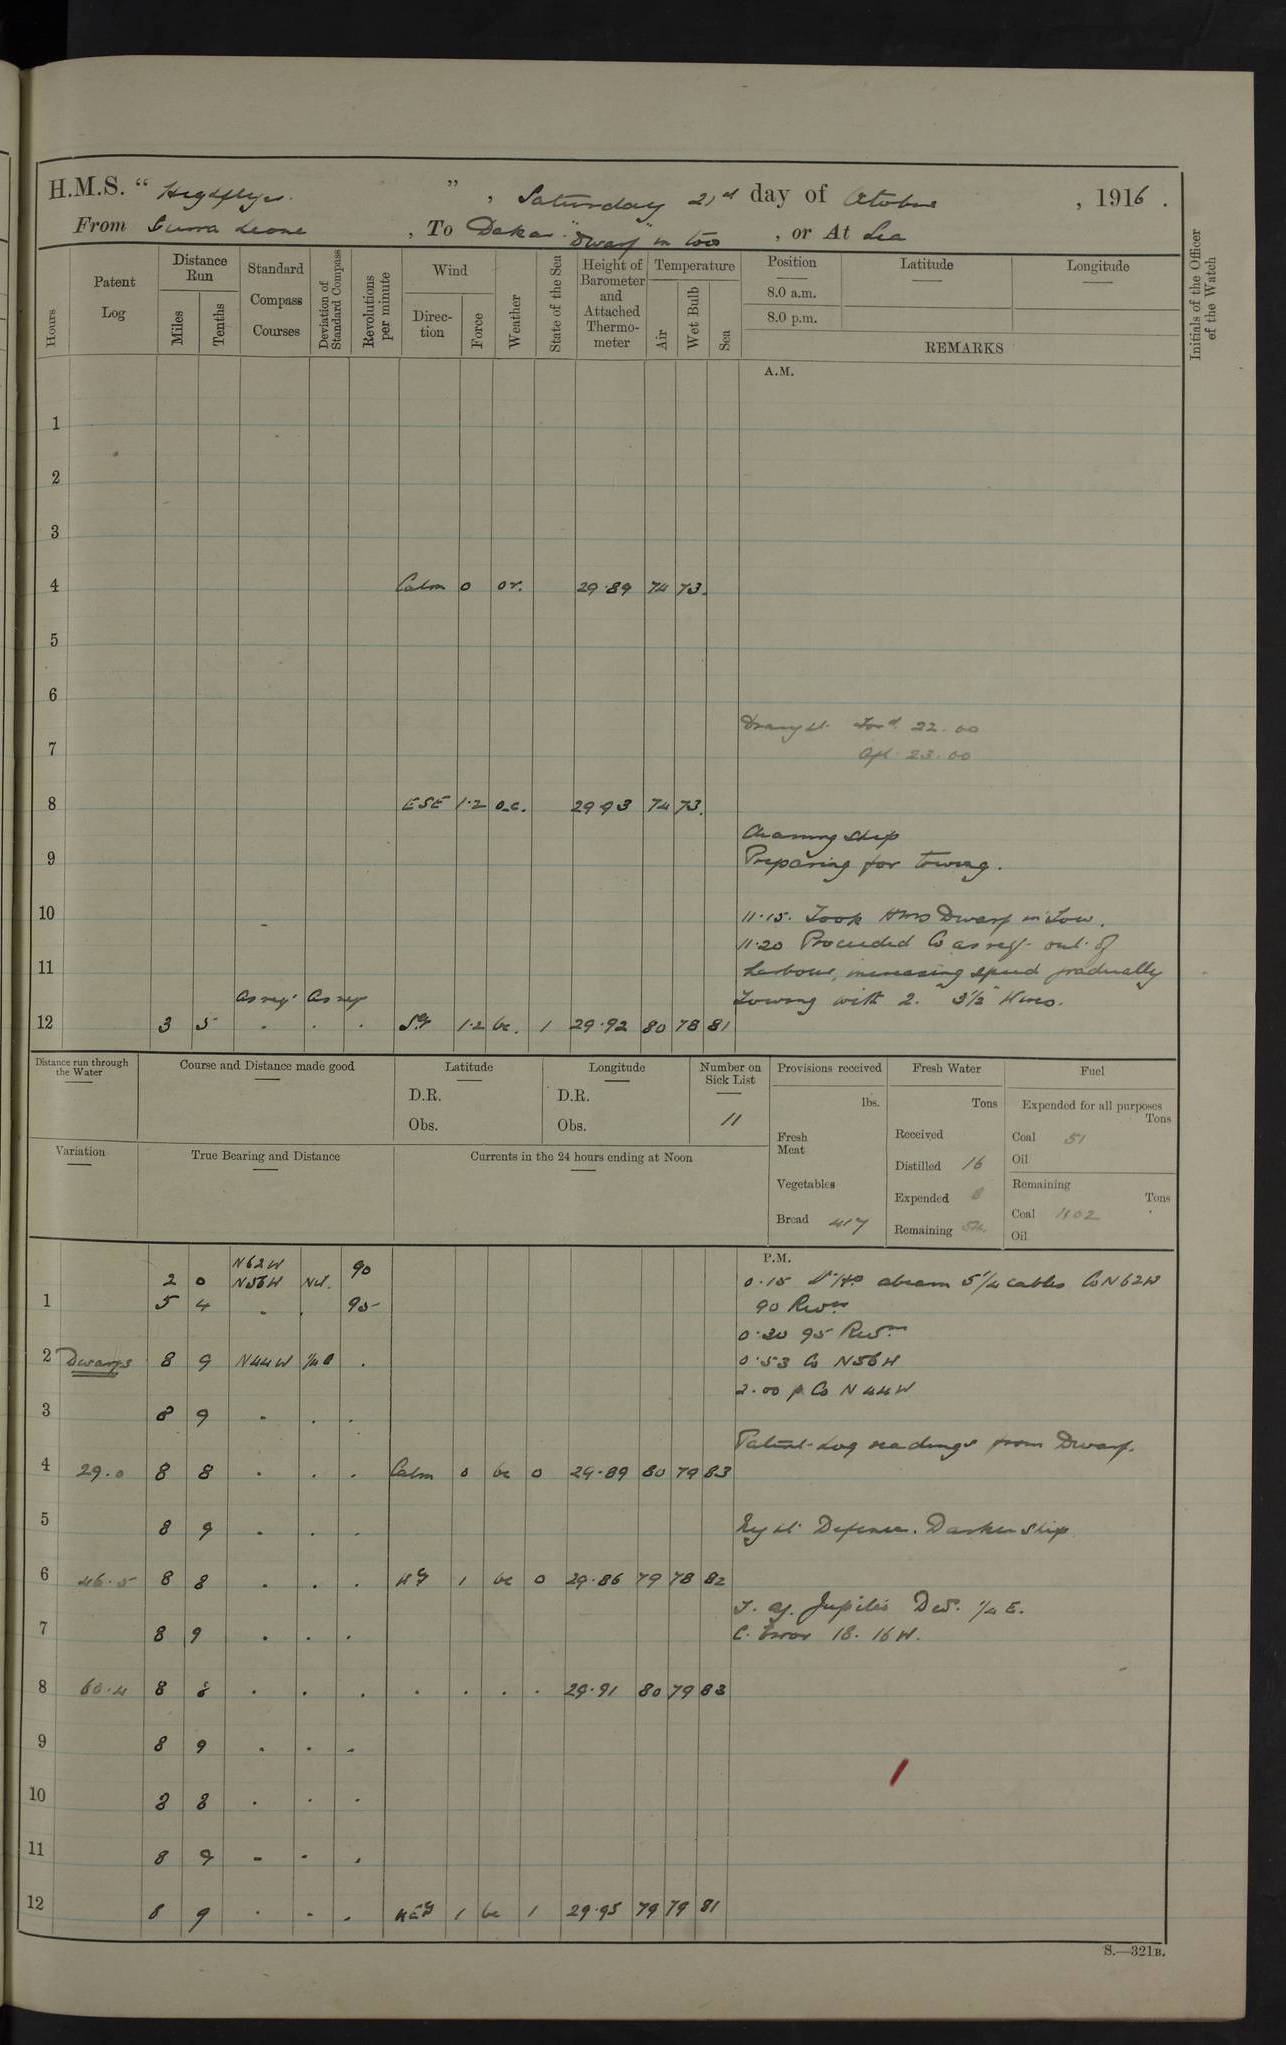 H.M.S. “ Highflyer ” , Saturday 21st day of October , 1916 .
From Sierra Leone , To Dakar "Dwarf" in tow , or At Sea
Hours
Patent Log
Distance Run
Miles
Tenths
Standard Compass Courses
Deviation of Standard Compass
Revolutions per minute
Wind
Direction
Force
Weather
State of the Sea
Height of Barometer and Attached Thermometer
Temperature
Air
Wet Bulb
Sea
Position
8.0 a.m.
8.0 p.m.
Latitude
Longitude
REMARKS
Initials of the Officer of the Watch
A.M.
1
2
3
4 Calm 0 or. 29.89 74 73.
5
6
Draught Ford. 22.00
7 Aft 23.00
8 ESE 1.2 o.c. 29.93 74 73.
Cleaning ship
9 Preparing for towing.
10 11.15. Took HMS Dwarf in tow.
11.20 Proceeded Co as req. out of
11 harbour, increasing speed gradually
As req. As req Towing with 2. 3½" Hwrs.
12 3 5 . . . 1.2 bc. 1 29.92 80 78 81
Distance run through the Water
Course and Distance made good
Latitude
D.R.
Obs.
Longitude
D.R.
Obs.
Number on Sick List
11
Variation
True Bearing and Distance
Currents in the 24 hours ending at Noon
Provisions received
lbs.
Fresh Meat
Vegetables
Bread 417
Fresh Water
Tons
Received
Distilled 16
Expended
Remaining
Fuel
Expended for all purposes
Tons
Coal 51
Oil
Remaining
Tons
Coal 1102
Oil
P.M.
N62W 90
2 0 N56W Nil. 0.15 abeam 5¼ cables Co N62W
1 5 4 . . 95 90 Revns
0.30 95 Revns
2 Dwarfs 8 9 N44W ¼ E . 0.53 Co N56W
2.00 p. Co N44W
3 8 9 . . .
Patent Log readings from Dwarf.
4 29.0 8 8 . . . Calm 0 bc 0 29.89 80 79 83
5 8 9 . . . Night Defence. Darken ship
6 46.5 8 8 . . . 1 bc 0 29.86 79 78 82
Jupiter Dev. ¼ E.
7 8 9 . . . C. Error 18. 16W.
8 60.4 8 8 . . . . . . . 29.91 80 79 83
9 8 9 . . .
10 8 8 . . .
11 8 9 - . .
12 8 9 . . . 1 bc 1 29.95 79 79 81
S.—321B.